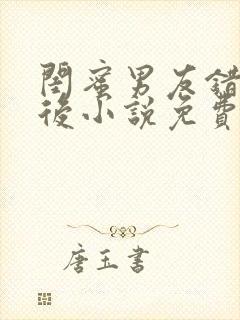 閨蜜男友錯
後小說免費
唐玉書